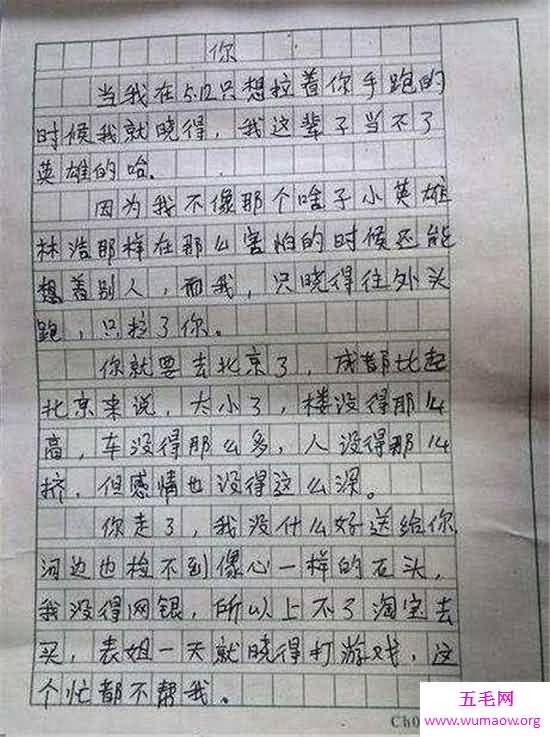 你
当我在5.12只想拉着你手跑的
时候我就晓得，我这辈子当不了
英雄的哈。
因为我不像那个啥子小英雄
林浩那样在那么害怕的时候还能
想着别人，而我，只晓得往外头
跑，只拉了你。
你就要去北京了，成都比起
北京来说，太小了，楼没得那么
高，车没得那么多，人没得那么
挤，但感情也没得这么深。
你走了，我没什么好送给你，
河边也捡不到像心一样的石头，
我没得网银，所以上不了淘宝去
买，表姐一天就晓得打游戏，这
个忙都不帮我。
五毛网
www.wumaow.org